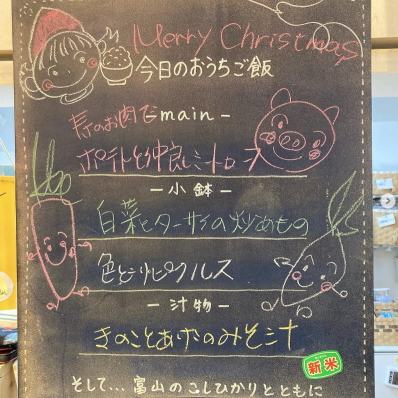 Merry Christmas
今日のおうちご飯
寿のお肉でmain-
ポテトと仲良しミートローフ
-小鉢-
白菜とターサイの炒めもの
色とりどりピクルス
-汁物-
きのことあげのみそ汁
新米
そして...富山のこしひかりとともに